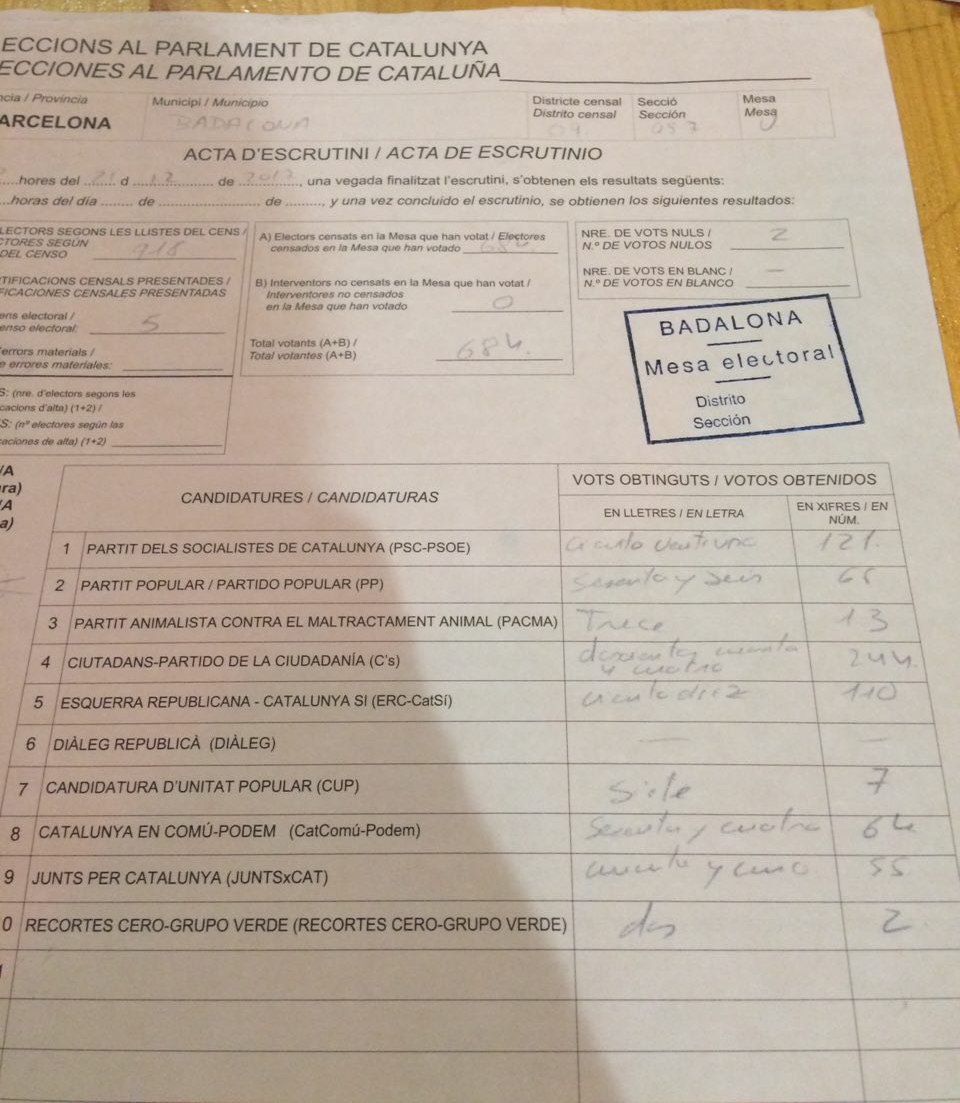 ECCIONS AL PARLAMENT DE CATALUNYA
ECCIONES AL PARLAMENTO DE CATALUÑA
ncia / Província Municipi / Municipio Districte censal Secció Mesa
Distrito censal Sección Mesa
ARCELONA BADALONA 09 U
ACTA D'ESCRUTINI / ACTA DE ESCRUTINIO
....hores del 21 d 12 de 2017, una vegada finalitzat l'escrutini, s'obtenen els resultats següents:
....horas del día ........ de ........................ de ........, y una vez concluído el escrutinio, se obtienen los siguientes resultados:
LECTORS SEGONS LES LLISTES DEL CENS /
CTORES SEGÚN
DEL CENSO 918
TIFICACIONS CENSALS PRESENTADES /
FICACIONES CENSALES PRESENTADAS
ens electoral /
enso electoral: 5
errors materials /
e errores materiales:
S: (nre. d'electors segons les
cacions d'alta) (1+2) /
S: (nº electores según las
caciones de alta) (1+2)
A) Electors censats en la Mesa que han votat / Electores
censados en la Mesa que han votado 684.
B) Interventors no censats en la Mesa que han votat /
Interventores no censados
en la Mesa que han votado 0
Total votants (A+B) /
Total votantes (A+B) 684.
NRE. DE VOTS NULS /
N.º DE VOTOS NULOS 2
NRE. DE VOTS EN BLANC /
N.º DE VOTOS EN BLANCO —
BADALONA
Mesa electoral
Distrito
Sección
/A
ra)
/A
a)
CANDIDATURES / CANDIDATURAS
VOTS OBTINGUTS / VOTOS OBTENIDOS
EN LLETRES / EN LETRA
EN XIFRES / EN
NÚM.
1 PARTIT DELS SOCIALISTES DE CATALUNYA (PSC-PSOE) ciento ventiuno 121.
2 PARTIT POPULAR / PARTIDO POPULAR (PP) sesenta y seis 66
3 PARTIT ANIMALISTA CONTRA EL MALTRACTAMENT ANIMAL (PACMA) Trece 13
4 CIUTADANS-PARTIDO DE LA CIUDADANÍA (C's) doscientos cuarenta
y cuatro 244.
5 ESQUERRA REPUBLICANA - CATALUNYA SI (ERC-CatSí) ciento diez 110
6 DIÀLEG REPUBLICÀ (DIÀLEG) — —
7 CANDIDATURA D'UNITAT POPULAR (CUP) Siete 7
8 CATALUNYA EN COMÚ-PODEM (CatComú-Podem) Sesenta y cuatro 64
9 JUNTS PER CATALUNYA (JUNTSxCAT) cincuenta y cinco 55
0 RECORTES CERO-GRUPO VERDE (RECORTES CERO-GRUPO VERDE) dos 2